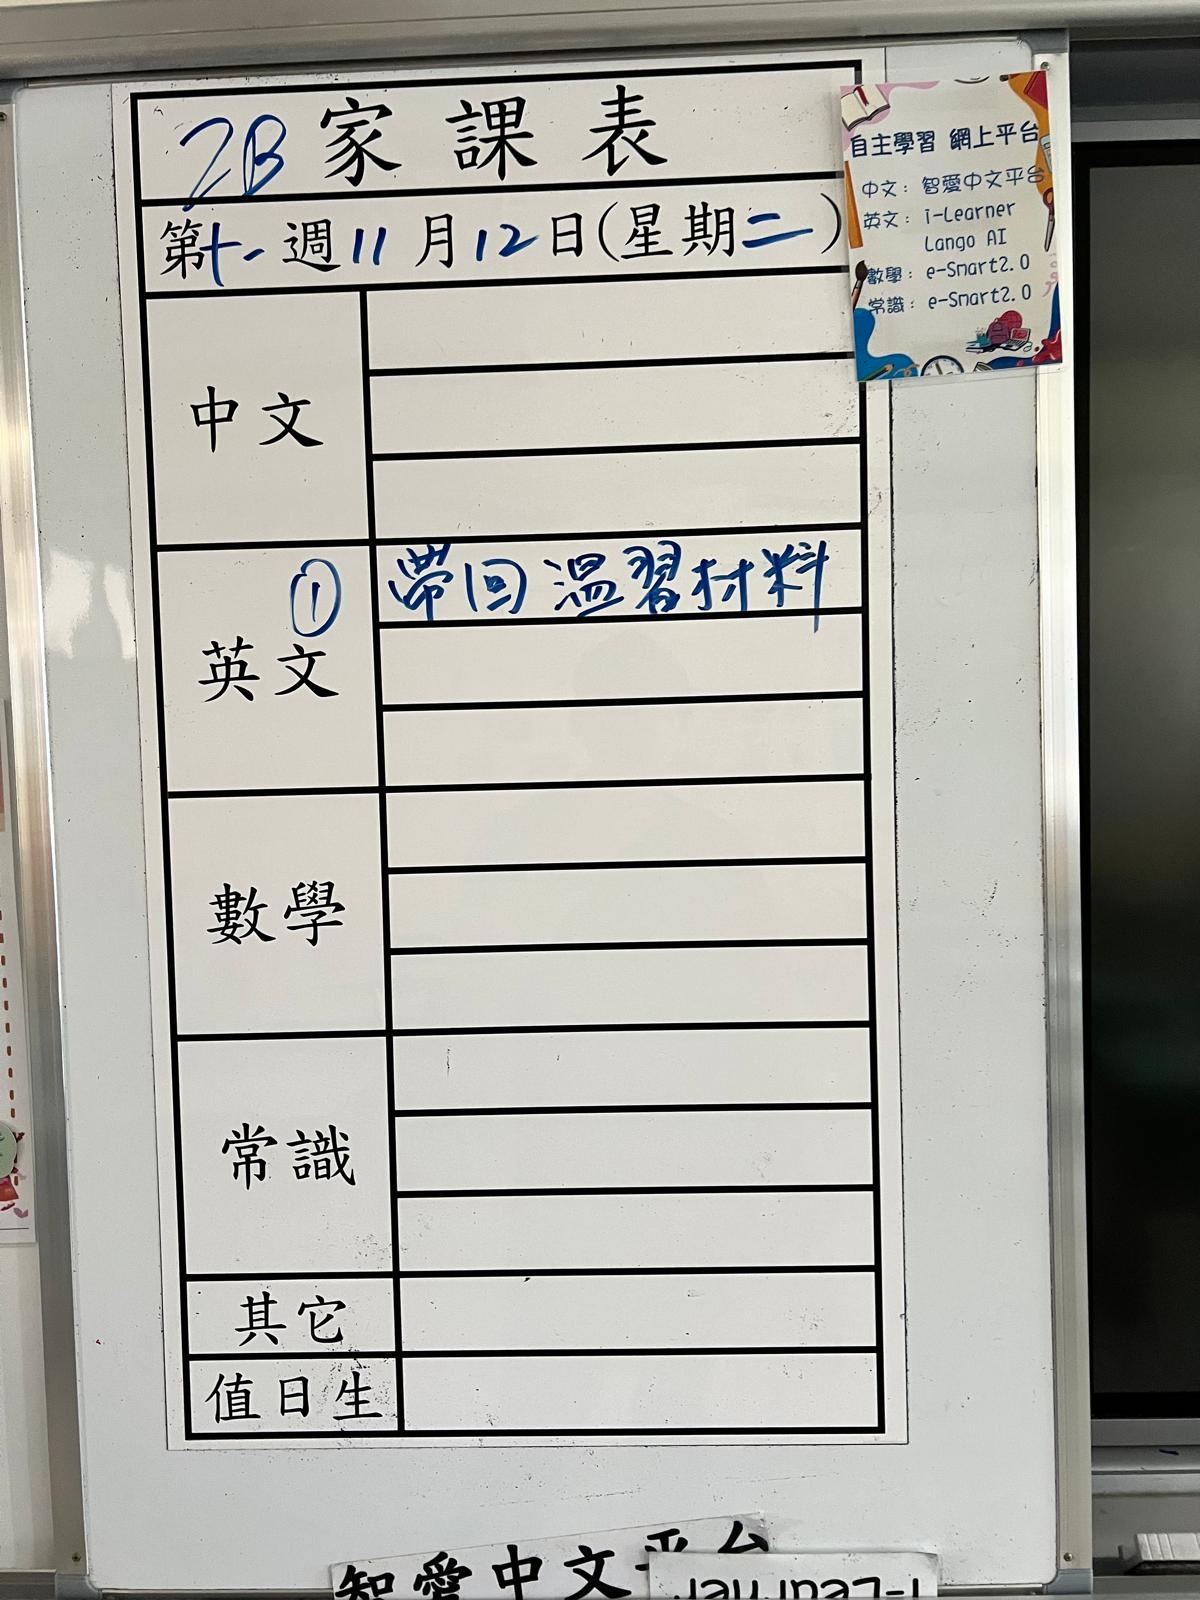 2B 家課表
第十一週11月12日(星期二)
自主學習 網上平台
中文：智愛中文平台
英文：i-Learner
Lango AI
數學：e-Smart2.0
常識：e-Smart2.0
中文
英文 ① 帶回溫習材料
數學
常識
其它
值日生
智愛中文平台
i-Learner